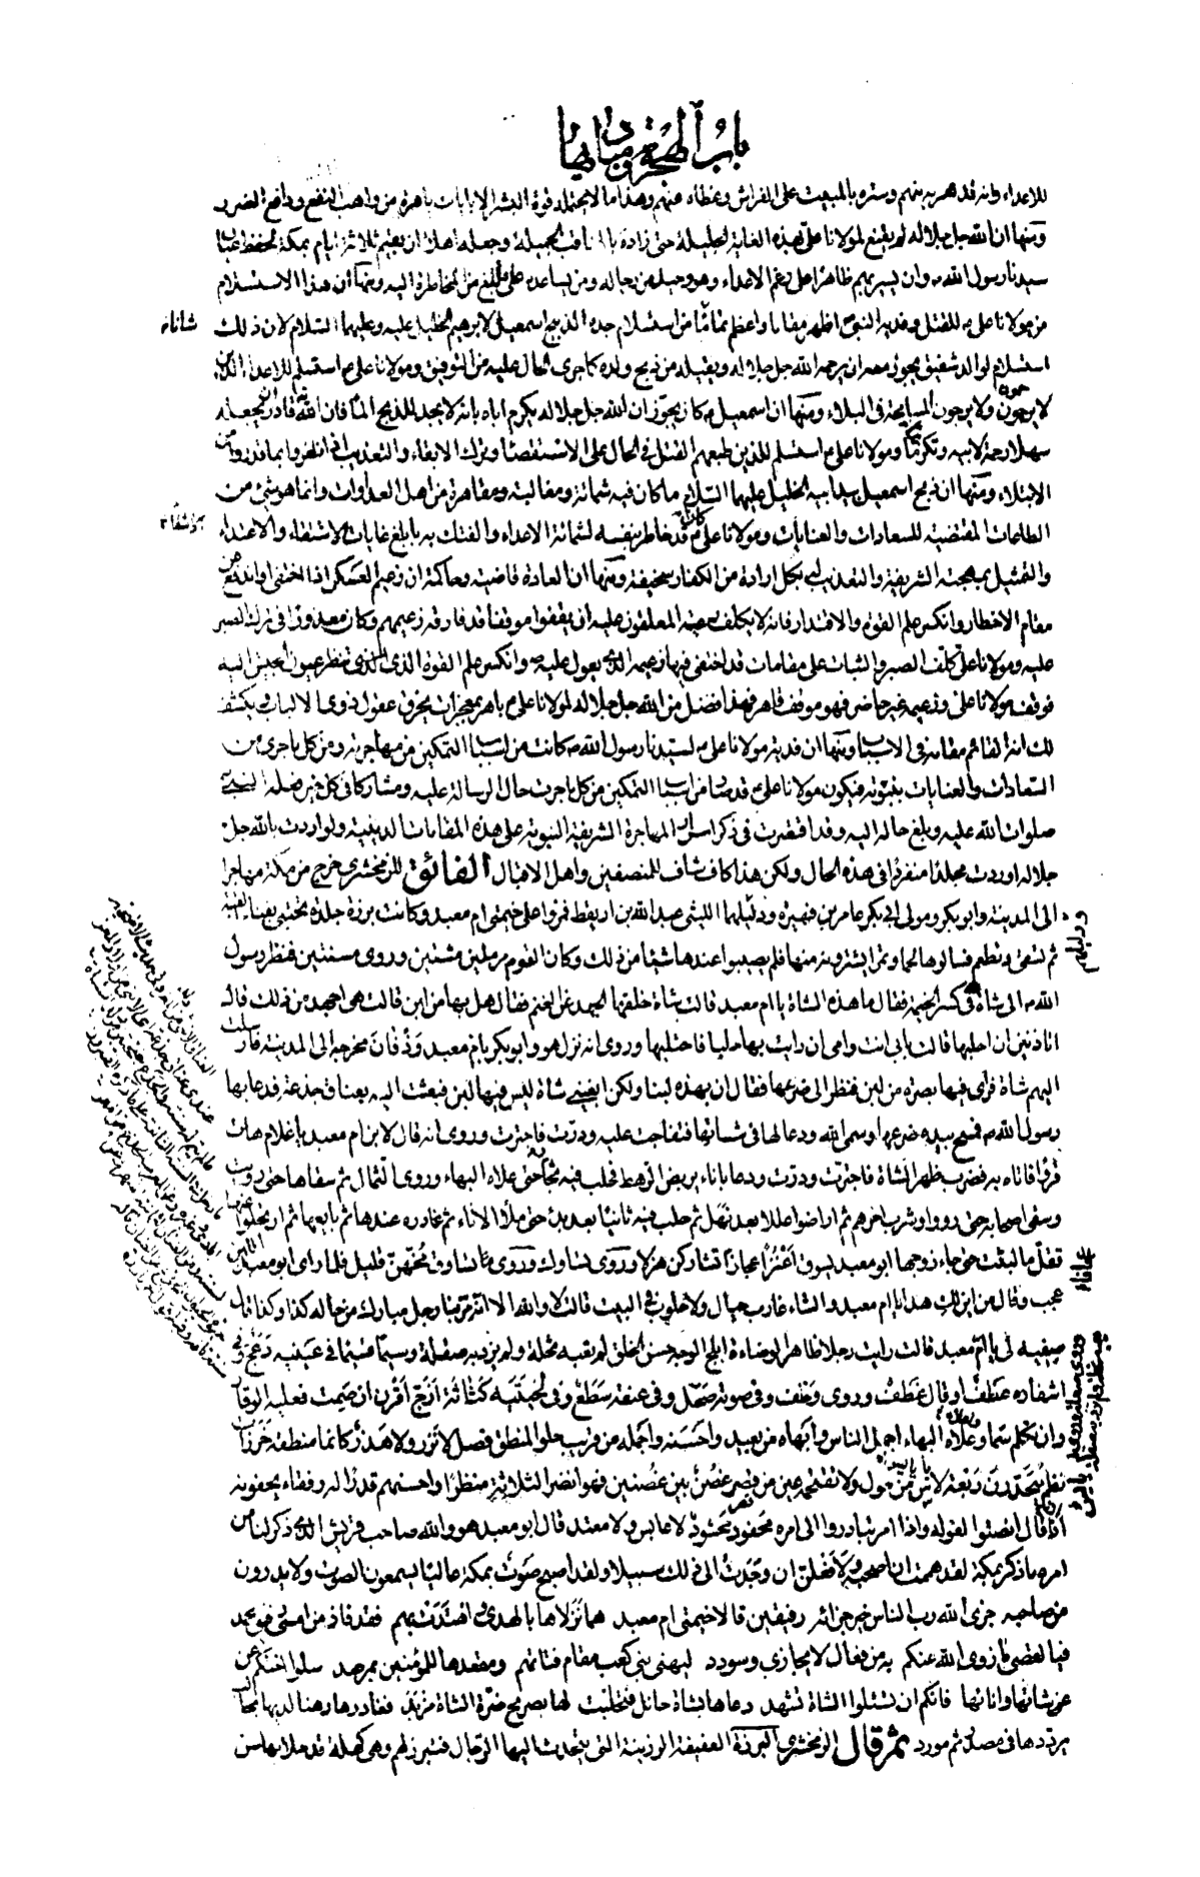 باب الهجرة ومباديها
للاعداء وانه قد هربه بينهم وستره بالمبيت على الفراش وغطاه عنهم وهذا ما لا يحتمله قوة البشر الا بايات باهرة من واهب النفع ودافع الضرر
ومنها ان الله جل جلاله لم يقنع لمولانا علي بهذه الغاية الجليلة حتى زاده بالمناقب الجميلة وجعله اهلا ان يقيم ثلاثة ايام بمكة لحفظ عيال
سيدنا رسول الله ص وان يسير بهم ظاهرا على رغم الاعداء وهو وحيد من رجاله ومن يساعده على ما بلغ من المخاطرة اليه ومنها ان هذا الاستسلام
من مولانا علي ع للقتل وفديه النبي ص اظهر مقاما واعظم تماما من استسلام جده الذبيح اسمعيل لابرهيم الخليل عليه وعليهما السلام لان ذلك
استسلام لوالد شفيق يجوز معه ان يرحمه الله جل جلاله ويقيله من ذبح ولده كما جرى الحال عليه من التوفيق ومولانا علي ع استسلم للاعداء الذين
لا يرحمونه ولا يرجون المسامحة في البلاء ومنها ان اسمعيل ع كان يجوز ان الله جل جلاله يكرم اباه بانه لا يجد للذبح الما فان الله قادر ان يجعله
سهلا رحمة لابيه وتكرمة ومولانا علي ع استسلم للذين طبعهم القتل في الحال على الاستقصاء وترك الابقاء والتعذيب اذا ظفروا بما قدروا من
الابتلاء ومنها ان ذبح اسمعيل بيد ابيه الخليل عليهما السلام ما كان فيه شماتة ومغالبة ومقاهرة من اهل العداوات وانما هو شئ من
الطاعات المقتضية للسعادات والعنايات ومولانا علي ع كان قد خاطر بنفسه لشماتة الاعداء والفتك به بابلغ غايات الاشتفاء والاعتداء
والتمثيل بمهجته الشريفة والتعذيب له بكل ارادة من الكفار سخيفة ومنها ان العادة قاضية وحاكمة ان زعيم العسكر اذا اختفى او اندفع عن
مقام الاخطار وانكسر علم القوة والاقتدار فانه لا يكلف رعيته المعلقون عليه ان يقفوا موقفا قد فارقه زعيمهم وكان معذورا في ترك الصبر
عليه ومولانا علي ع كلف الصبر والثبات على مقامات قد اختفى فيها زعيمه الذي يعول عليه ص وانكسر علم القوة الذي تنظر عيون الجيش اليه
فوقف مولانا علي ع وزعيمه غير حاضر فهو موقف قاهر فهذا فضل من الله جل جلاله لمولانا علي ع باهر بمعجزات يخرق عقول ذوي الالباب ويكشف
لك انه القائم مقامه في الاسباب ومنها ان فدية مولانا علي ع لسيدنا رسول الله ص كانت من اسباب التمكين من مهاجرته ومن كل ما جرى من
السعادات والعنايات بنبوته فيكون مولانا علي ع قد صار من اسباب التمكين من كل ما جرت حال الرسالة عليه ومشاركا في كل خير فعله النبي
صلوات الله عليه وبلغ حاله اليه وقد اقتصرت في ذكر اسرار المهاجرة الشريفة النبوية على هذه المقامات الدينية ولو اردت بالله جل
جلاله اوردت مجلدا منفردا في هذه الحال ولكن هذا كاف شاف للمنصفين واهل الاقبال الفائق للزمخشري خرج من مكة مهاجرا
الى المدينة وابو بكر ومولى ابي بكر عامر بن فهيرة ودليلهما الليثي عبد الله بن اريقط فمروا على خيمتي ام معبد وكانت برزة جلدة تحتبي بفناء القبة
ثم تسقى وتطعم فسالوها لحما وتمرا ليشتروه منها فلم يصيبوا عندها شيئا من ذلك وكان القوم مرملين مشتين وروى مسنتين فنظر رسول
الله ص الى شاة في كسر الخيمة فقال ما هذه الشاة يا ام معبد قالت شاة خلفها الجهد عن الغنم فقال هل بها من لبن قالت هي اجهد من ذلك قال
اتاذنين ان احلبها قالت بابي انت وامي ان رايت بها حلبا فاحتلبها وروى انه نزل هو وابو بكر بام معبد وذفان مخرجه الى المدينة فارسلت
اليهم شاة فراى فيها بصرة من لبن فنظر الى ضرعها فقال ان بهذه لبنا ولكن ابغيني شاة ليس فيها لبن فبعثت اليه بعناق جذعة فدعا بها
رسول الله ص فمسح بيده ضرعها وسمى الله ودعا لها في شاتها فتفاجت عليه ودرت فاجترت وروى انه قال لابن ام معبد يا غلام هات
قروا فاتاه به فضرب ظهر الشاة فاجترت ودرت ودعا باناء يربض الرهط فحلب فيه ثجا حتى علاه البهاء وروى الثمال ثم سقاها حتى رويت
وسقى اصحابه حتى رووا وشرب اخرهم ثم اراضوا عللا بعد نهل ثم حلب فيه ثانيا بعد بدء حتى ملأ الاناء ثم غادره عندها ثم بايعها ثم ارتحلوا عنها
فقل ما لبثت حتى جاء زوجها ابو معبد يسوق اعنزا عجافا تشاركن هزلا وروى تساوك وروى ما تساوق مخهن قليل فلما راى ابو معبد اللبن
عجب وقال من اين لك هذا يا ام معبد والشاء عازب حيال ولا حلوب في البيت قالت لا والله الا انه مر بنا رجل مبارك من حاله كذا وكذا قال
صفيه لي يا ام معبد قالت رايت رجلا ظاهر الوضاءة ابلج الوجه حسن الخلق لم تعبه ثجلة ولم يزر به صقلة وسيما قسيما في عينيه دعج وفي
اشفاره عطف او قال غطف وروى وطف وفي صوته صحل وفي عنقه سطع وفي لحيته كثاثة ازج اقرن ان صمت فعليه الوقار
وان تكلم سما وعلاه البهاء اجمل الناس وابهاه من بعيد واحسنه واجمله من قريب حلو المنطق فصل لا نزر ولا هذر كانما منطقه خرزات
نظم يتحدرن ربعة لا يأس من طول ولا تقتحمه عين من قصر غصن بين غصنين فهو انضر الثلاثة منظرا واحسنهم قدرا له رفقاء يحفون به
اذا قال انصتوا لقوله واذا امر تبادروا الى امره محفود محشود لا عابس ولا معتد قال ابو معبد هو والله صاحب قريش الذي ذكر لنا من
امره ما ذكر بمكة لقد هممت ان اصحبه ولافعلن ان وجدت الى ذلك سبيلا ولقد اصبح صوت بمكة عاليا يسمعون الصوت ولا يدرون
من صاحبه جزى الله رب الناس خير جزائه رفيقين قالا خيمتي ام معبد هما نزلاها بالهدى فاهتدت بهم فقد فاز من امسى رفيق محمد
فيا لقصي ما زوى الله عنكم به من فعال لا يجازى وسودد ليهنى بني كعب مقام فتاتهم ومقعدها للمؤمنين بمرصد سلوا اختكم عن
عن شاتها وانائها فانكم ان تسئلوا الشاة تشهد دعاها بشاة حائل فتحلبت لها بصريح ضرة الشاة مزبد فغادرها رهنا لديها لحالب
يرددها في مصدر ثم مورد ثم قال الزمخشري البرزة العفيفة الرزينة التي يتحدث اليها الرجال فتبرز لهم وهي كهلة قد خلا بها سن
شاناء
ودليلهم
عجافاء